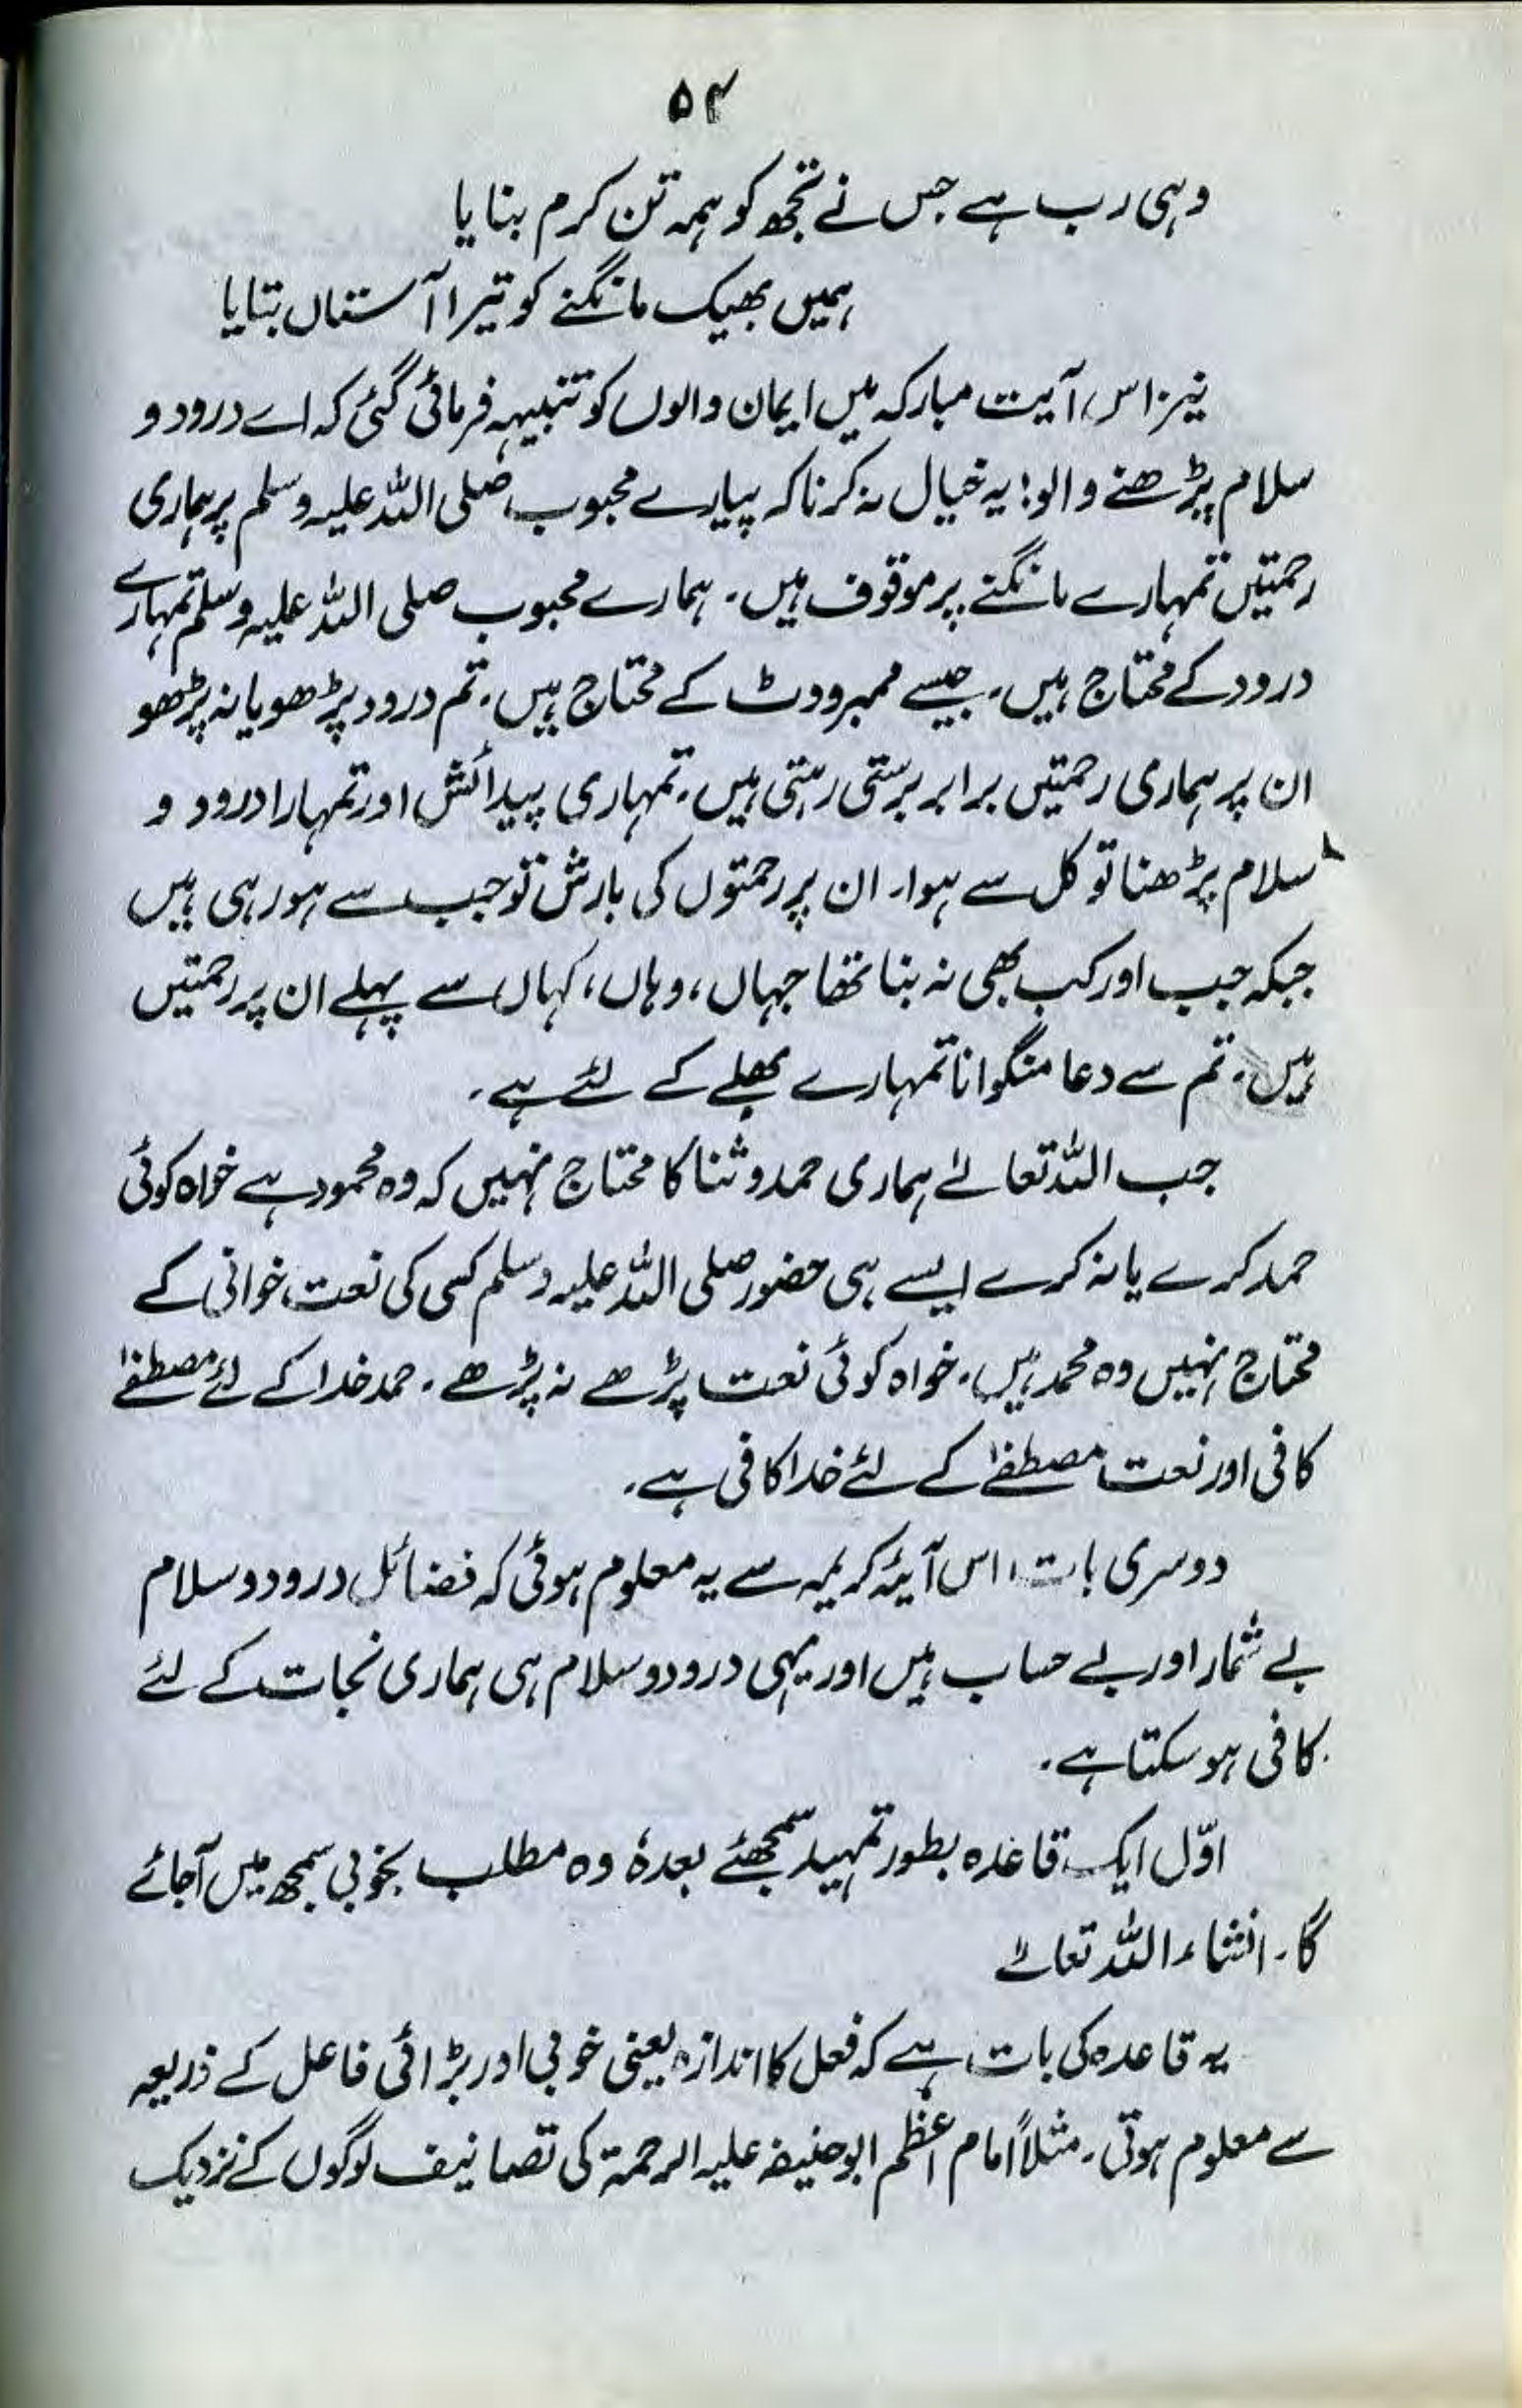 ۵۴
وہی رب ہے جس نے تجھ کو ہمہ تن کرم بنایا
ہمیں بھیک مانگنے کو تیرا آستاں بتایا
نیز اس آیت مبارکہ میں ایمان والوں کو تنبیہہ فرمائی گئی کہ اے درود و
سلام پڑھنے والو! یہ خیال نہ کرنا کہ پیارے محبوب صلی اللہ علیہ وسلم پر ہماری
رحمتیں تمہارے مانگنے پر موقوف ہیں۔ ہمارے محبوب صلی اللہ علیہ وسلم تمہارے
درود کے محتاج ہیں۔ جیسے ممبر ووٹ کے محتاج ہیں۔ تم درود پڑھو یا نہ پڑھو
ان پر ہماری رحمتیں برابر برستی رہتی ہیں۔ تمہاری پیدائش اور تمہارا درود و
سلام پڑھنا تو کل سے ہوا۔ ان پر رحمتوں کی بارش تو جب سے ہو رہی ہیں
جبکہ جب اور کب بھی نہ بنا تھا جہاں، وہاں، کہاں سے پہلے ان پر رحمتیں
ہیں۔ تم سے دعا منگوانا تمہارے بھلے کے لئے ہے۔
جب اللہ تعالےٰ ہماری حمد و ثنا کا محتاج نہیں کہ وہ محمود ہے خواہ کوئی
حمد کرے یا نہ کرے ایسے ہی حضور صلی اللہ علیہ وسلم کسی کی نعت خوانی کے
محتاج نہیں وہ محمد ہیں۔ خواہ کوئی نعت پڑھے نہ پڑھے۔ حمد خدا کے لئے مصطفےٰ
کافی اور نعت مصطفےٰ کے لئے خدا کافی ہے۔
دوسری بات، اس آیئہ کریمہ سے یہ معلوم ہوئی کہ فضائل درود و سلام
بے شمار اور بے حساب ہیں اور یہی درود و سلام ہی ہماری نجات کے لئے
کافی ہو سکتا ہے۔
اوّل ایک قاعدہ بطور تمہید سمجھئے بعدہٗ وہ مطلب بخوبی سمجھ میں آجائے
گا۔ انشاء اللہ تعالےٰ
یہ قاعدہ کی بات ہے کہ فعل کا اندازہ یعنی خوبی اور بڑائی فاعل کے ذریعہ
سے معلوم ہوتی۔ مثلاً امام اعظم ابوحنیفہ علیہ الرحمۃ کی تصانیف لوگوں کے نزدیک